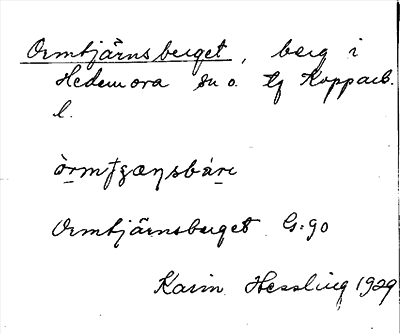 Ormtjärnsberget, berg i
Hedemora sn o. tg Kopparb.
l.
Ormtjärnsberget G:90
Karin Hessling 1929